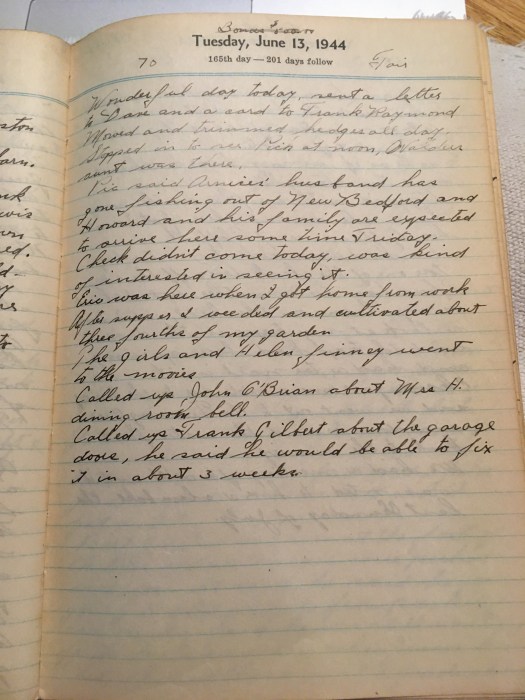 Tuesday, June 13, 1944
165th day — 201 days follow
70 Fair
Wonderful day today, sent a letter
to Dave and a card to Frank Raymond
Mowed and trimmed hedges all day
Stopped in to see Ric at noon,
aunt was there.
Ric said husband has
gone fishing out of New Bedford and
Howard and his family are expected
to arrive here some time Friday.
Check didn't come today, was kind
of interested in seeing it.
was here when I got home from work
After supper I weeded and cultivated about
three fourths of my garden
The girls and Helen Finney went
to the movies
Called up John O'Brian about Mrs H.
dining room bell.
Called up Frank Gilbert about the garage
doors, he said he would be able to fix
it in about 3 weeks.